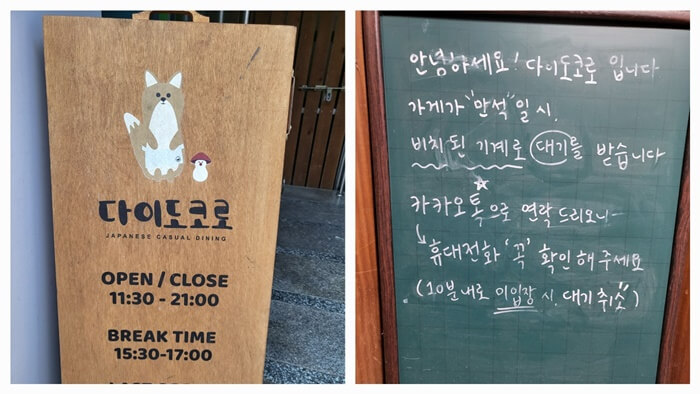 다이도코로
JAPANESE CASUAL DINING
OPEN / CLOSE
11:30 - 21:00
BREAK TIME
15:30-17:00
안녕하세요! 다이도코로 입니다
가게가 "만석"일 시,
비치된 기계로 대기를 받습니다
카카오톡으로 연락드리오니
휴대전화 '꼭' 확인해주세요
(10분 내로 미입장 시, 대기 취소)